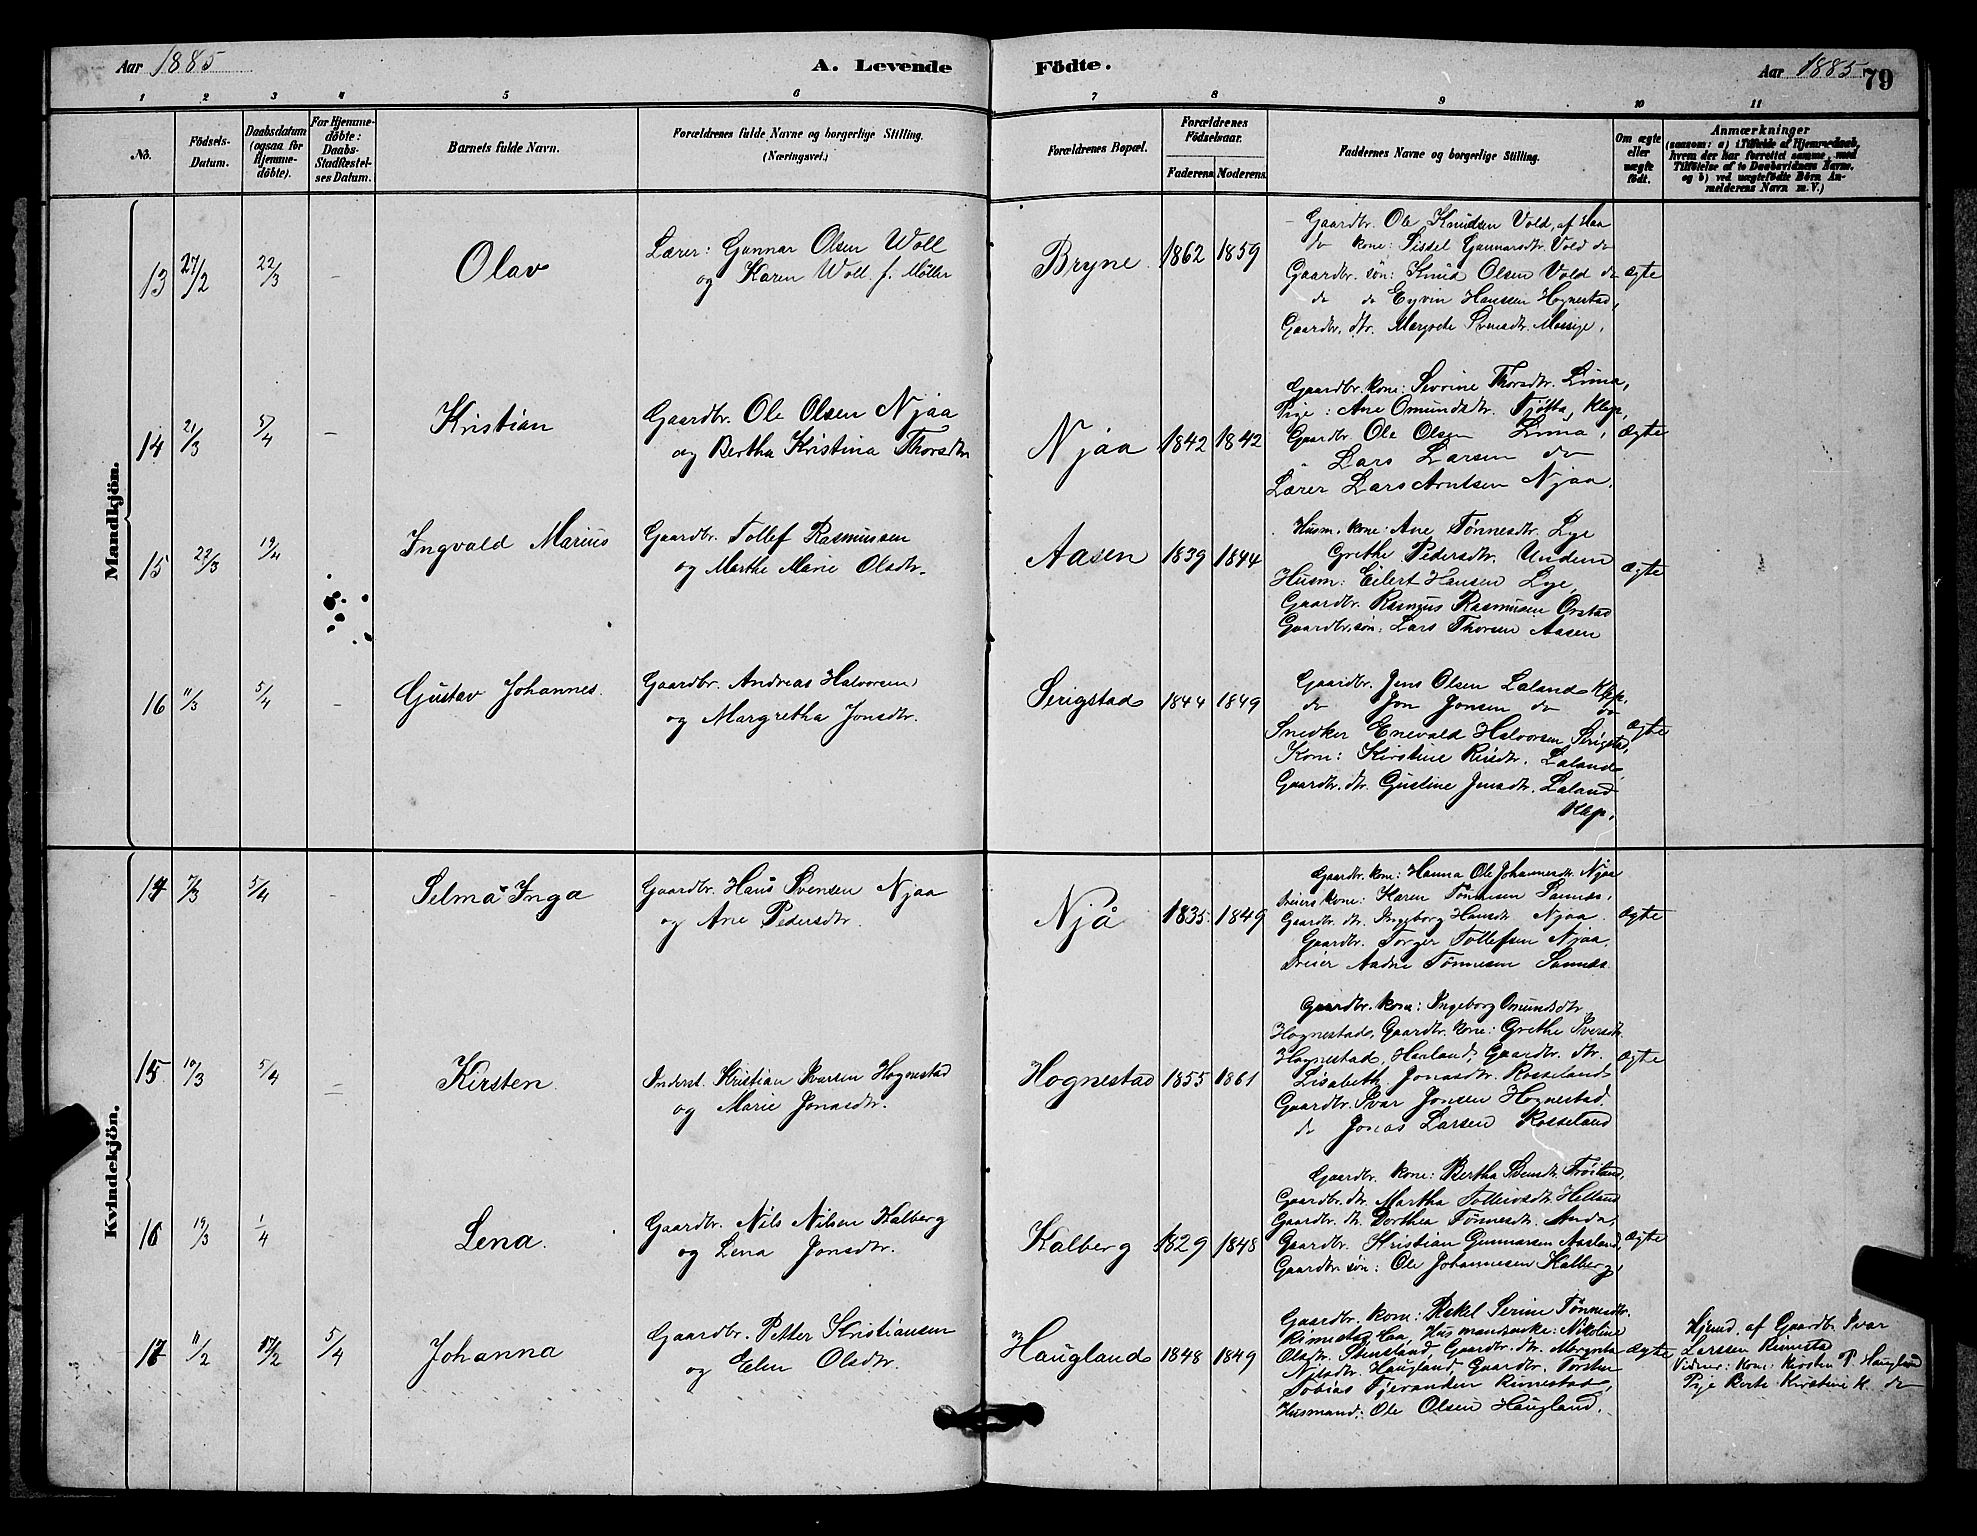 Aar 1885
A. Levende Födte.
Aar 1885
79
1 2 3 4 5 6 7 8 9 10 11
No.
Födsels-Datum.
Daabsdatum (ogsaa for Hjemme-döbte).
For Hjemme-döbte: Daabs-Stadfæstel-ses Datum.
Barnets fulde Navn.
Forældrenes fulde Navne og borgerlige Stilling. (Næringsvei.)
Forældrenes Bopæl.
Forældrenes Födselsaar.
Faderens
Moderens
Faddernes Navne og borgerlige Stilling.
Om ægte eller uægte födt.
Anmærkninger
(saasom: a) i Tilfælde af Hjemmedaab, hvem der har forrettet samme, med Tilföielse af to Daabsvidners Navne, og b) ved uægtefödte Börn An-melderens Navn m. V.)
Mandkjön.
13 27/2 22/3 – Olav
Lærer: Gunnar Olsen Woll
og Karen Woll f. Möller
Bryne 1862 1859
Gaardbr. Ole Knudsen Vold af Haa
do kone: Sissel Gunnarsdtr. Vold do
Gaardbr. søn: Knud Olsen Vold do
do do Eyvin Hanssen Hognestad,
Gaardbr. dtr. Margrete Svensdtr. Mossige.
ægte
14 21/3 5/4 – Kristian
Gaardbr. Ole Olsen Njaa
og Bertha Kristina Thorsdtr
Njaa 1842 1842
Gaardbr. kone: Sevrine Thorsdtr. Lima,
Pige: Ane Omundsdtr. Tjøtta, Klep,
Gaardbr Ole Olsen Lima,
" Lars Larsen do
Lærer Lars Arntsen Njaa.
ægte
15 22/3 19/4 Ingvald Marius
Gaardbr. Tollef Rasmussen
og Marthe Marie Olsdtr.
Aasen 1839 1844
Husm. kone: Ane Tønnesdtr. Lye
Grethe Pedersdtr. Undem
Husm: Eilert Hansen Lye,
Gaardbr. Rasmus Rasmussen Orstad
Gaardbr. søn: Lars Thorsen Aasen
ægte
16 11/3 5/4 – Gustav Johannes.
Gaardbr. Andreas Halvorsen
og Margretha Jonsdtr.
Serigstad 1844 1849
Gaardbr. Jens Olsen Laland Klep.
do Jon Jonsen do do
Snedker Enevald Halvorsen Serigstad,
Kone: Kirstine Larsdtr. Laland
Gaardbr. dtr. Gustine Jensdtr. Laland
Klep.
ægte
Kvindekjön.
14 7/3 5/4 – Selma Inga
Gaardbr. Hans Svensen Njaa
og Ane Pedersdtr.
Njå 1835 1849
Gaardbr. kone: Hanna Ole Johannesdtr Njaa
Dreiers kone: Karen Tønnesen Sannes,
Gaardbr. dtr. Ingeborg Hansdtr Njaa.
Gaardbr. Torger Tollefsen Njaa,
Dreier Aadne Tønnesen Sannes
ægte
15 10/3 5/4 – Kirsten
Inderst. Kristian Ivarsen Hognestad
og Marie Jonasdtr.
Hognestad 1855 1861
Gaardbr. kone: Ingeborg Omundsdtr
Hognestad, Gaardbr. kone: Grethe Iversdtr
Hognestad, Haaland, Gaardbr. dtr.
Lisabeth Jonasdtr. Rosseland
Gaardbr. Ivar Jonsen Hognestad.
do Jonas Larsen Rosseland
ægte
16 19/3 1/4 Lena.
Gaardbr. Nils Nilsen Kalberg
og Lena Jonsdtr.
Kalberg 1829 1848
Gaardbr. kone: Bertha Svensdtr. Frøiland,
Gaardbr. dtr. Martha Tolleivsdtr. Helland
Gaardbr. dtr. Dorthea Tønnesdtr. Anda,
Gaardbr. Kristian Gunnarsen Aasland,
Gaardbr søn: Ole Johannesen Kalberg,
ægte
17 11/2 17/2 5/4 Johanna
Gaardbr. Petter Kristiansen
og Elen Olsdtr.
Haugland 1848 1849
Gaardbr. kone: Rakel Serine Tønnesdtr.
Rimestad Haa, Husmandsenke: Nikoline
Olsdtr. Steinsland, Gaardbr. dtr. Mergreta
Nilsdtr. Haugland, Gaardbr. Torsten
Tobias Tjerandsen Rimestad,
Husmand: Ole Olsen Haugland.
ægte
Hjemd. af Gaardbr Ivar
Larssen Rimestad
Vidner: kone: Kirsten P. Haugland
Pige Berte Kirstine K. do